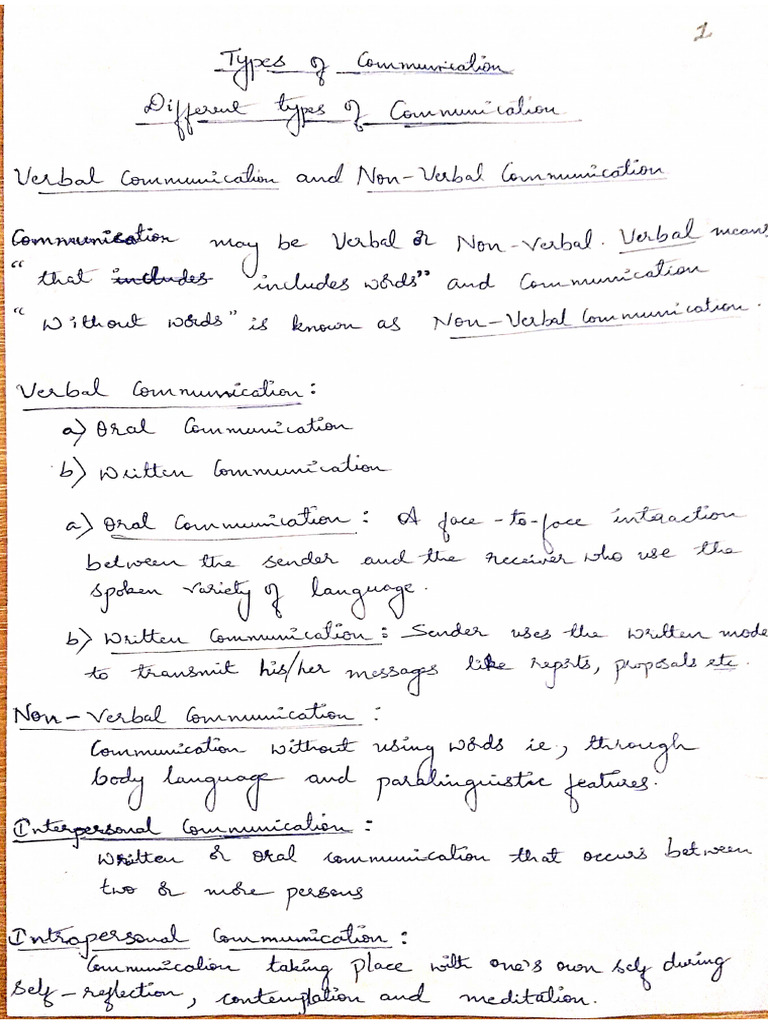 1
Types of Communication
Different types of Communication
Verbal Communication and Non-Verbal Communication
Communication may be Verbal or Non-Verbal. Verbal means
"that includes includes words" and Communication
"Without words" is known as Non-Verbal Communication.
Verbal Communication:
a) Oral Communication
b) Written Communication
a) Oral Communication: A face-to-face interaction
between the sender and the receiver who use the
spoken variety of language.
b) Written Communication: Sender uses the written mode
to transmit his/her messages like reports, proposals etc.
Non-Verbal Communication:
Communication without using words ie., through
body language and paralinguistic features.
Interpersonal Communication:
Written or oral communication that occurs between
two or more persons
Intrapersonal Communication:
Communication taking place with one's own self during
Self-reflection, contemplation and meditation.